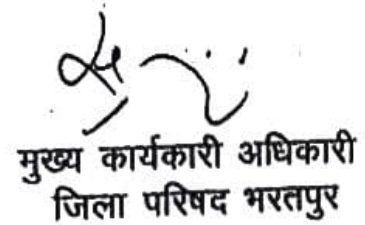 मुख्य कार्यकारी अधिकारी
जिला परिषद भरतपुर